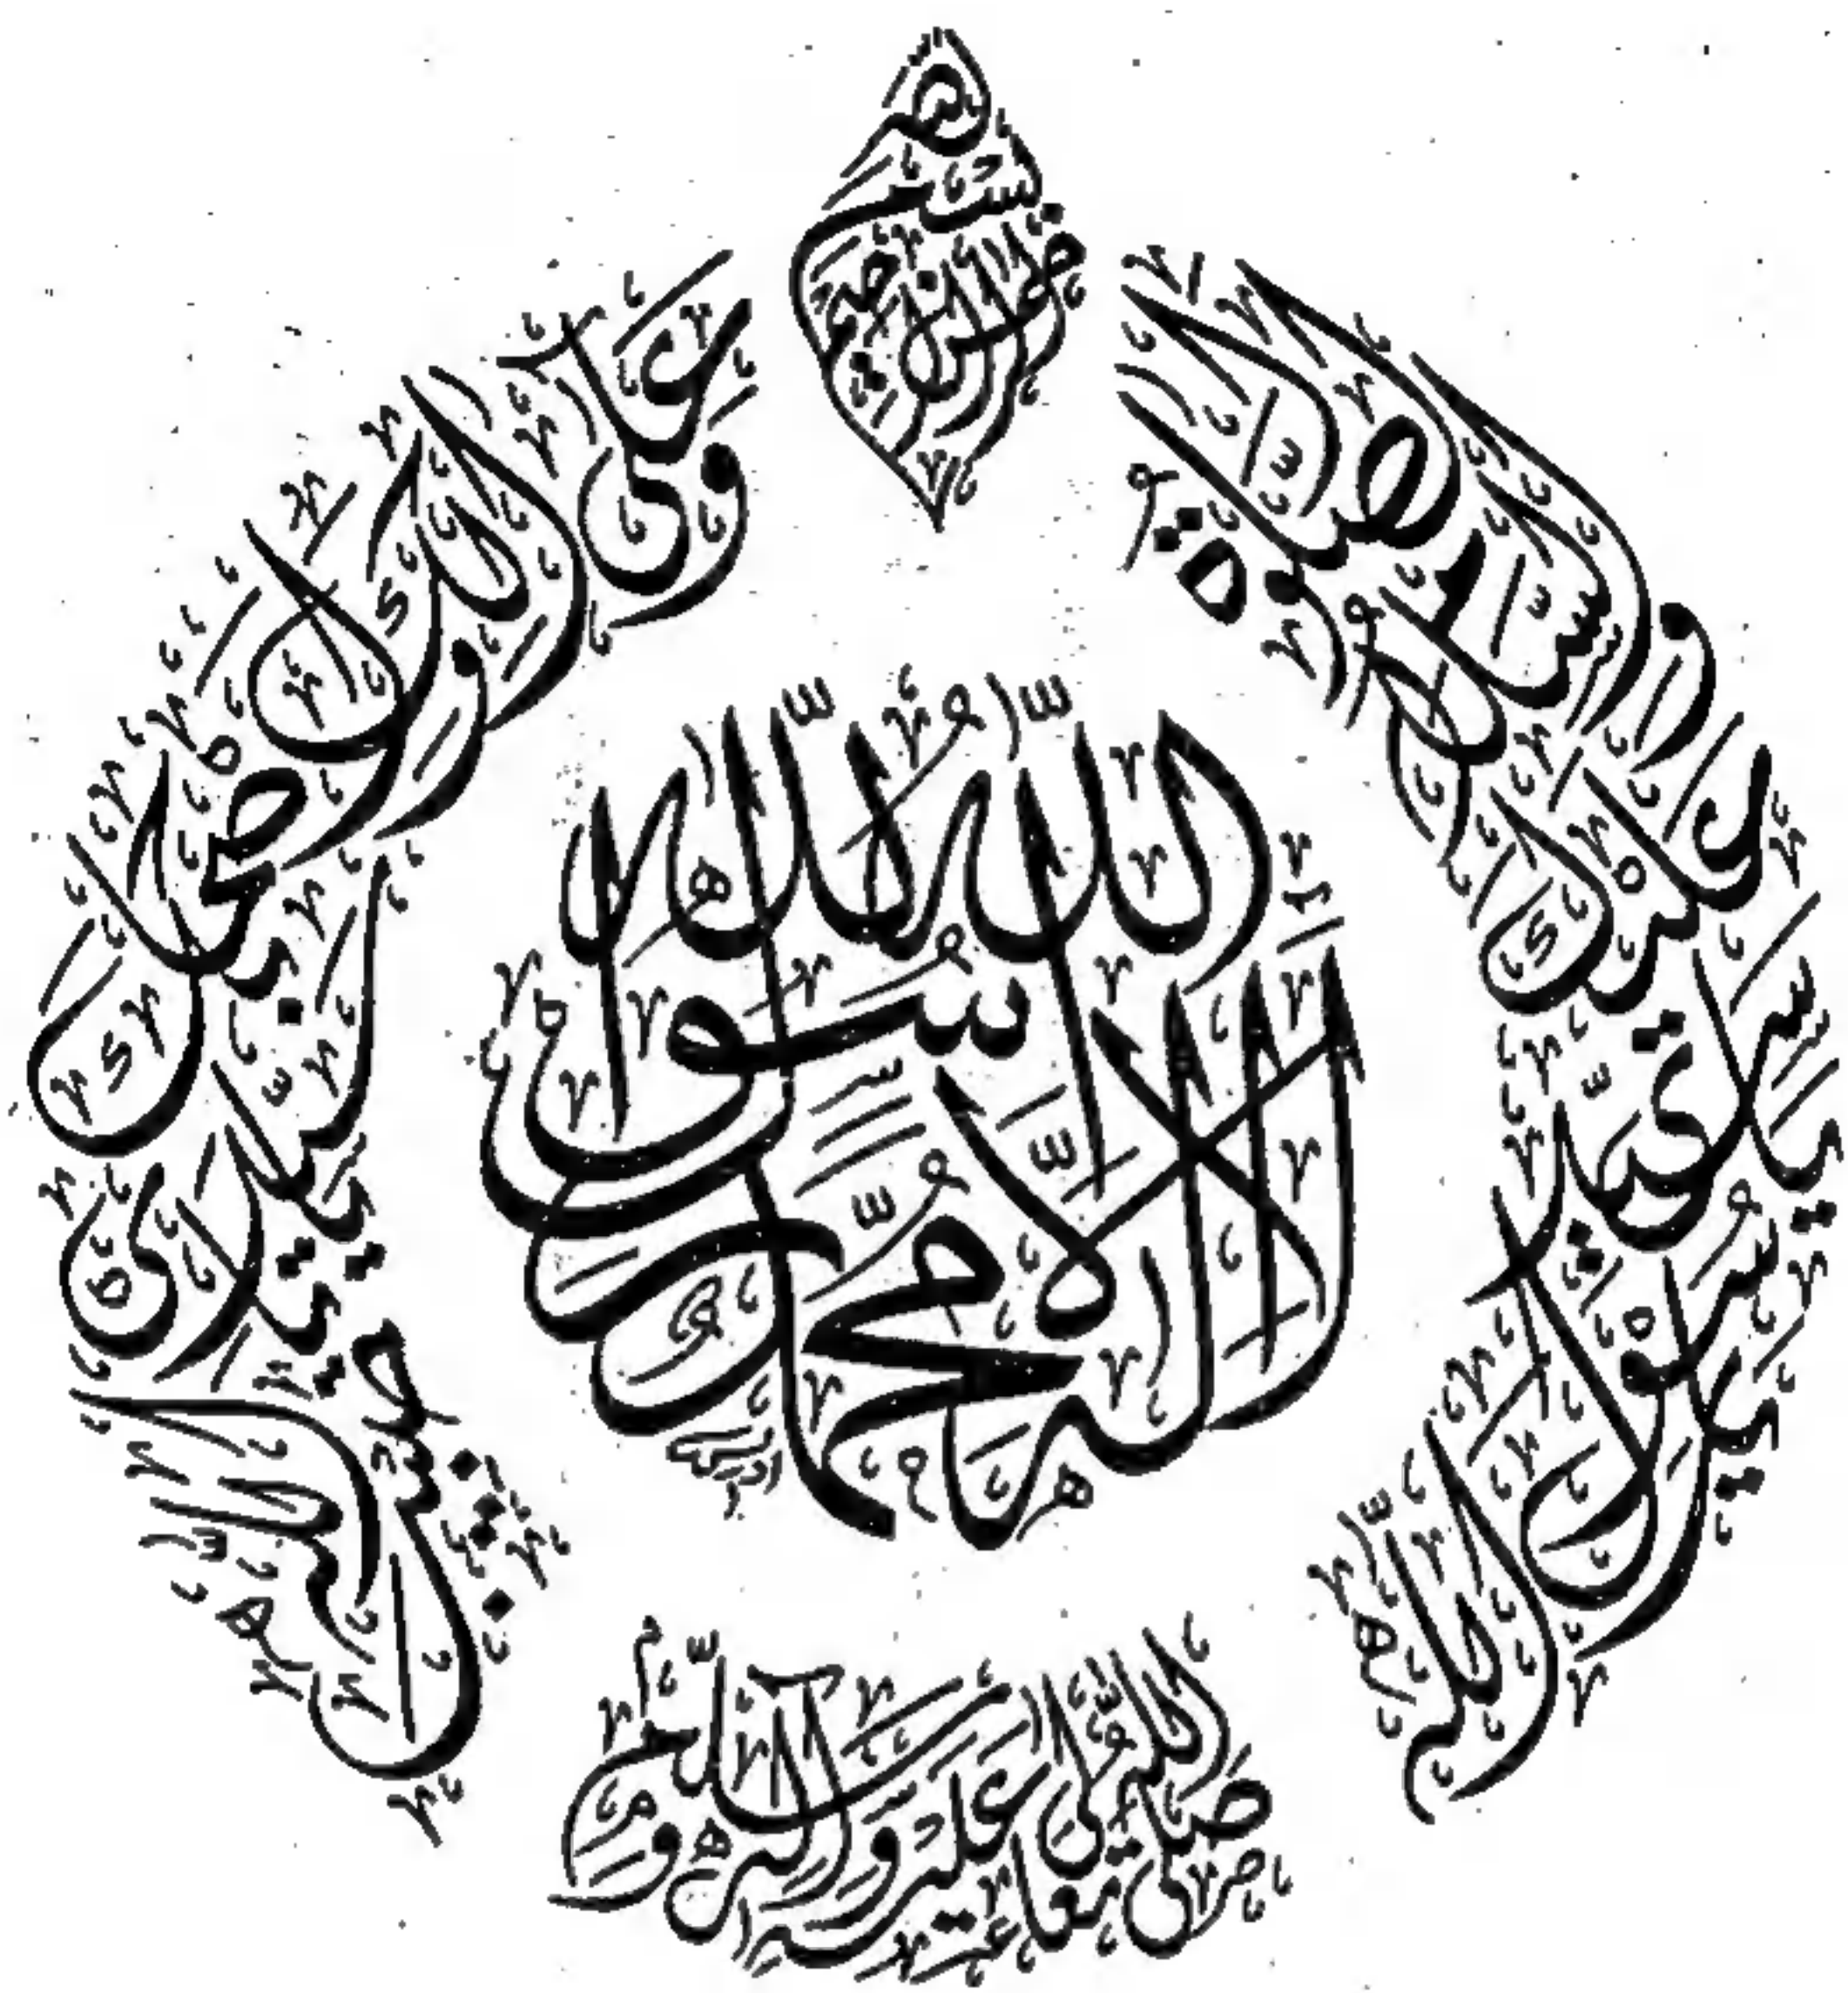 بسم الله الرحمن الرحيم
الصلوة والسلام عليك يا سيدي يا رسول الله
وعلى الك واصحابك يا سيدي يا حبيب الله
لا اله الا الله محمد رسول الله
صلى الله تعالى عليه واله وسلم